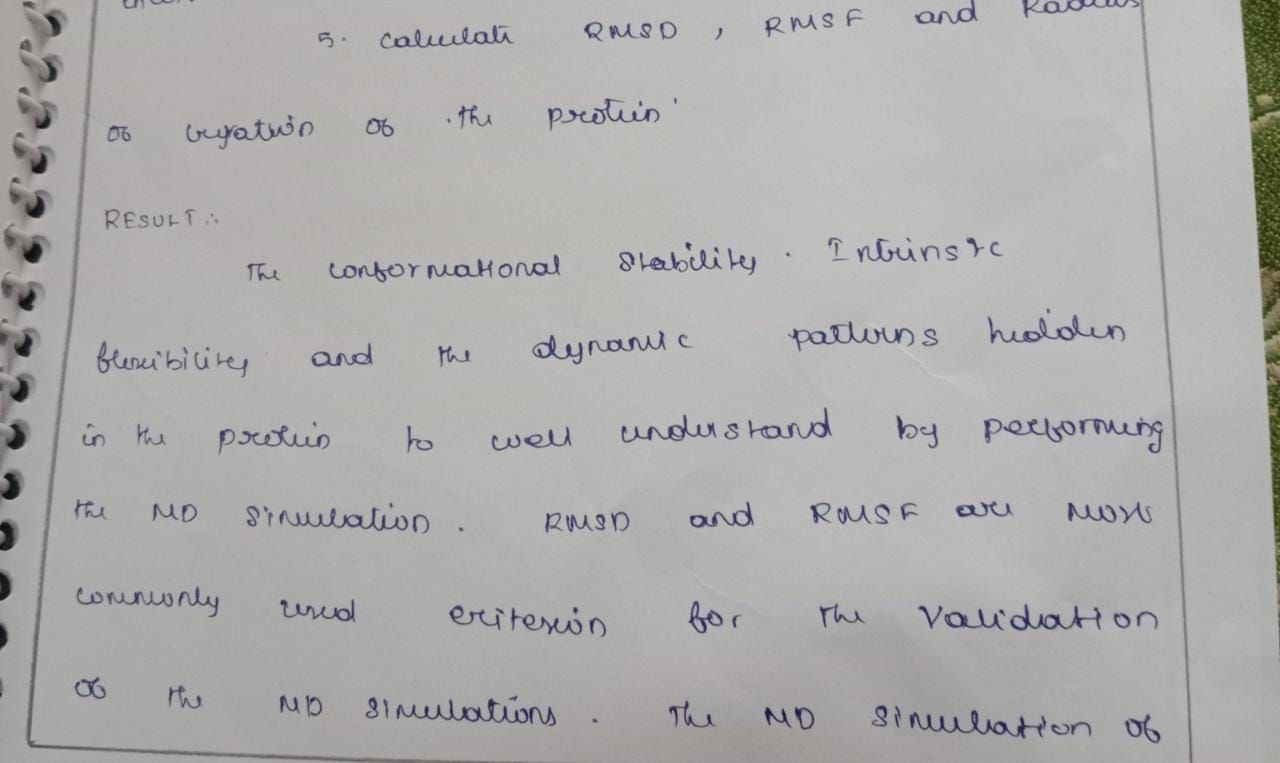 5. Calculate RMSD, RMSF and Radius
of gyration of the protein.
RESULT:
The conformational stability. Intrinsic
flexibility and the dynamic patterns hidden
in the protein to well understand by performing
the MD simulation. RMSD and RMSF are most
commonly used criterion for the validation
of the MD simulations. The MD simulation of